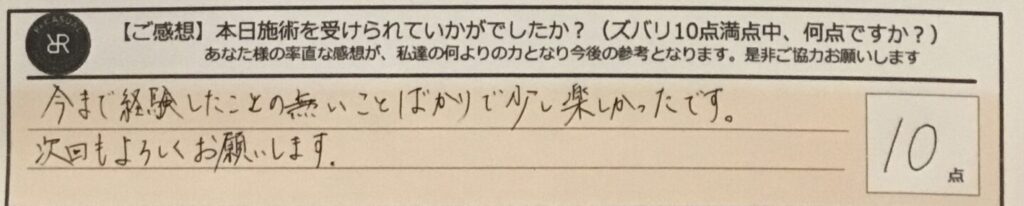 【ご感想】本日施術を受けられていかがでしたか？（ズバリ10点満点中、何点ですか？）
あなた様の率直な感想が、私達の何よりの力となり今後の参考となります。是非ご協力お願いします
今まで経験したことの無いことばかりで少し楽しかったです。
次回もよろしくお願いします.
10点